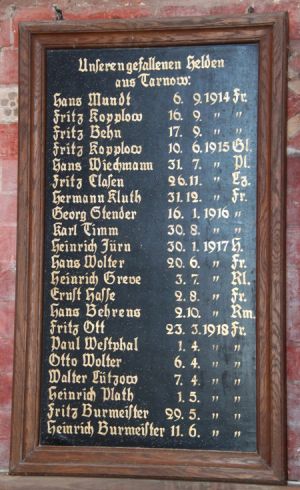 Unseren gefallenen Helden
aus Tarnow:
Hans Mundt 6. 9. 1914 Fr.
Fritz Kopplow 16. 9. " "
Fritz Behn 17. 9. " "
Fritz Kopplow 10. 6. 1915 Gl.
Hans Wiechmann 31. 7. " Pl.
Fritz Clasen 26. 11. " Lz.
Hermann Kluth 31. 12. " Fr.
Georg Stender 16. 1. 1916 "
Karl Timm 30. 8. " "
Heinrich Jürn 30. 1. 1917 H.
Hans Wolter 20. 6. " Fr.
Heinrich Greve 3. 7. " Kl.
Ernst Hasse 2. 8. " Fr.
Hans Behrens 2. 10. " Rm.
Fritz Ott 23. 3. 1918 Fr.
Paul Westphal 1. 4. " "
Otto Wolter 6. 4. " "
Walter Lützow 7. 4. " "
Heinrich Plath 1. 5. " "
Fritz Burmeister 29. 5. " "
Heinrich Burmeister 11. 6. " "